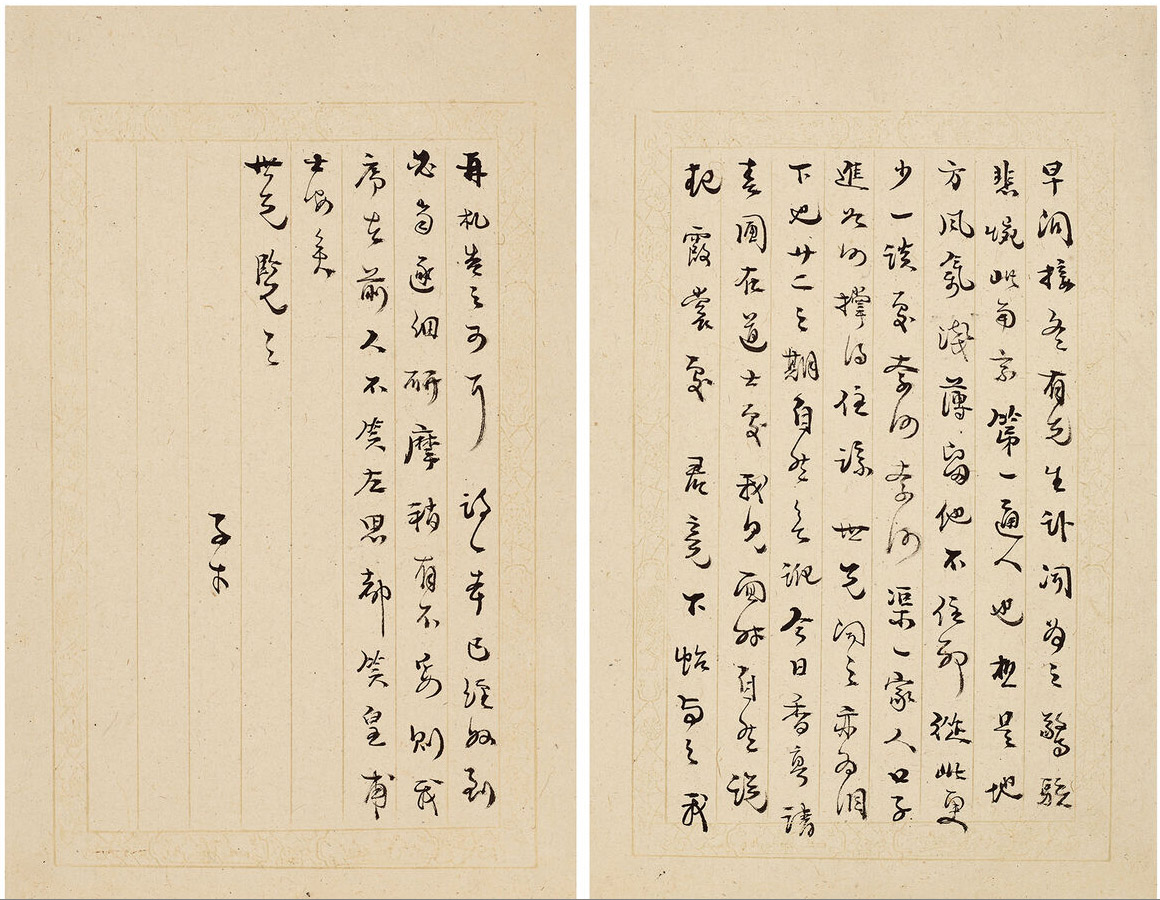 早间接冬有先生讣闻为之惊骇
悲惋此南京第一通人也极是地
方风气浅薄留他不住耶从此更
少一谈处奈何奈何渠一家人口子
进如何撑得住哉世兄闻之亦为泪
下也廿二之期自然无诳今日香亭请
春圃在道士处我见面时自然说
起霞裳处君竟不怡与之我
再札告之可耳诗一本已经收到
必当逐细研摩稍有不妥则我
序在前人不笑左思都笑皇甫
士安矣
世兄览之
子才